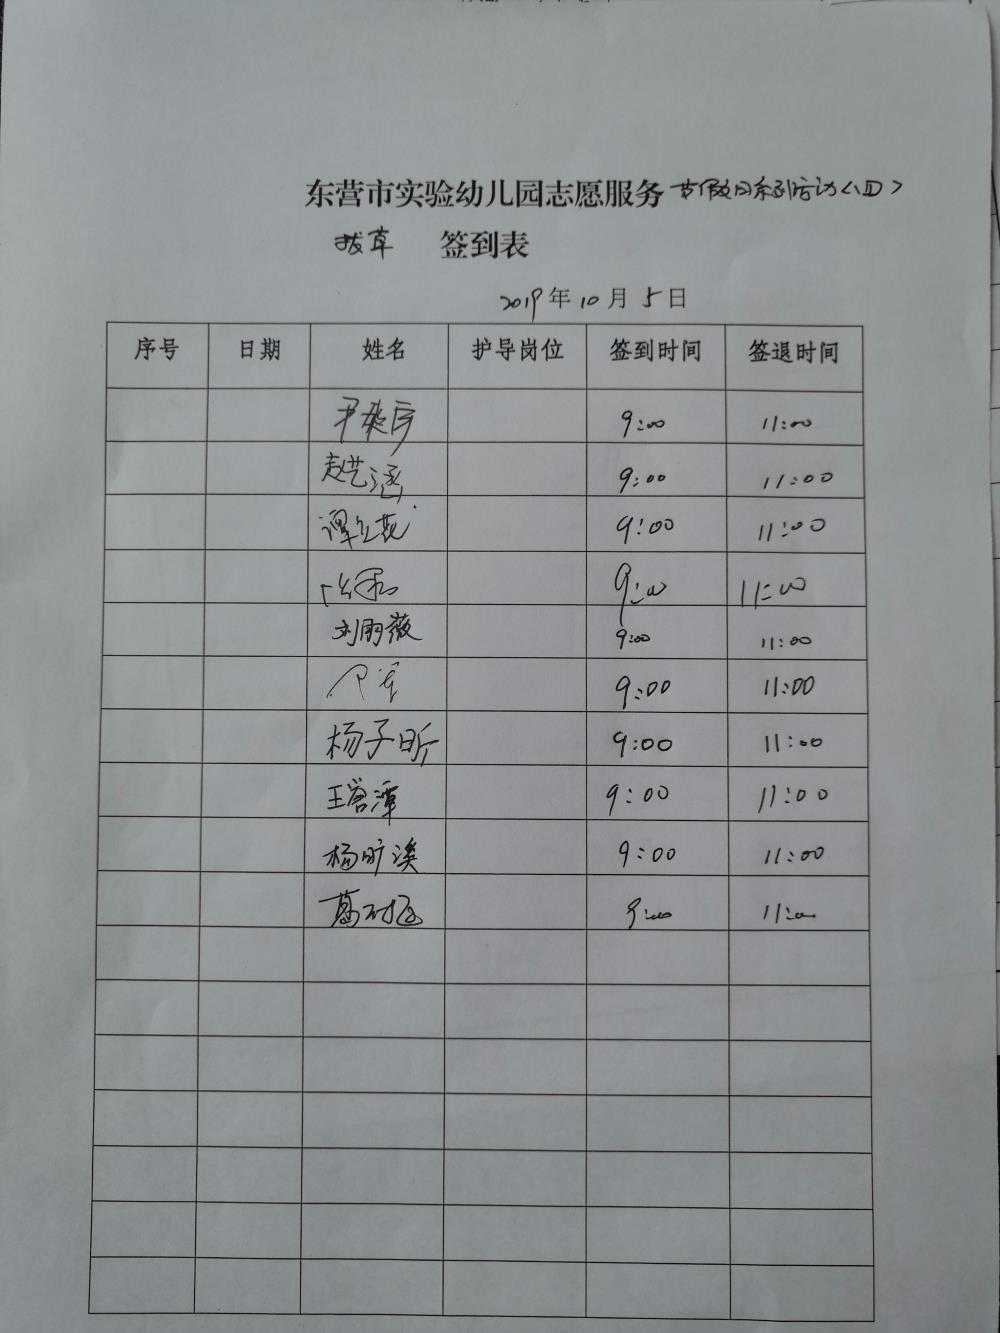 东营市实验幼儿园志愿服务节假日系列活动<四>
拔草 签到表
2019年10月5日
序号 日期 姓名 护导岗位 签到时间 签退时间
9:00 11:00
赵艺涵 9:00 11:00
谭立花 9:00 11:00
9:00 11:00
刘丽薇 9:00 11:00
9:00 11:00
杨子昕 9:00 11:00
王誉潭 9:00 11:00
杨昕溪 9:00 11:00
9:00 11:00